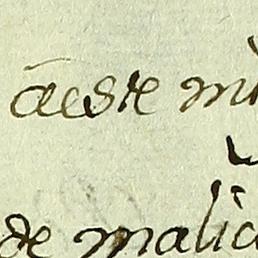 aeste mi
de malic